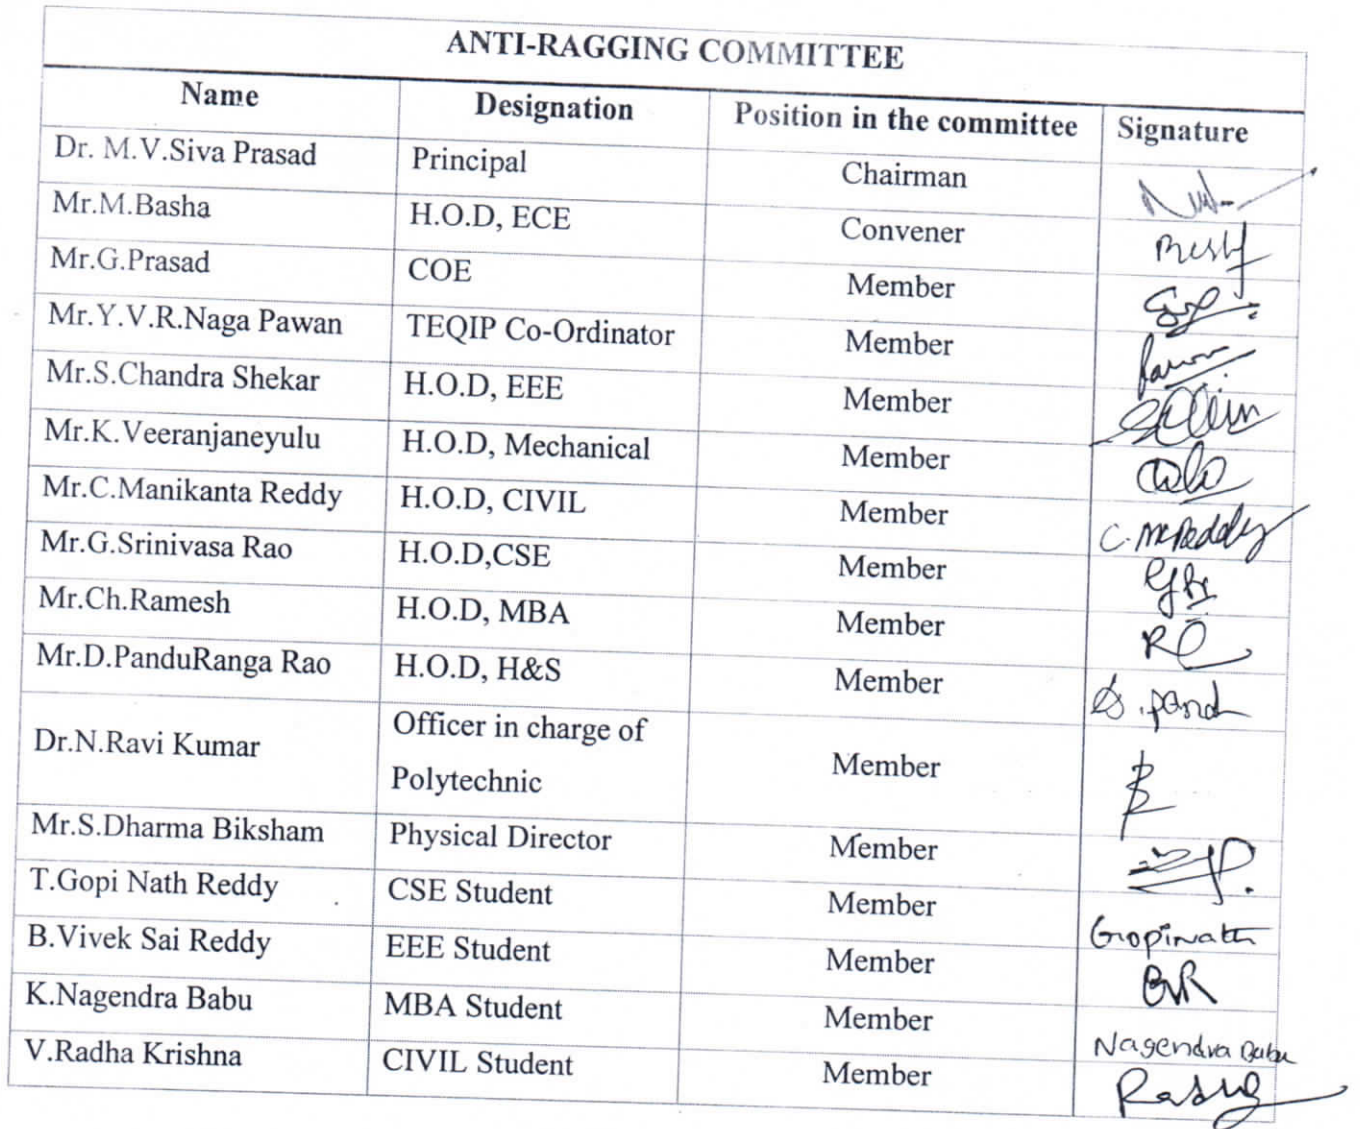 ANTI-RAGGING COMMITTEE
Name Designation Position in the committee Signature
Dr. M.V.Siva Prasad Principal Chairman
Mr.M.Basha H.O.D, ECE Convener
Mr.G.Prasad COE Member
Mr.Y.V.R.Naga Pawan TEQIP Co-Ordinator Member
Mr.S.Chandra Shekar H.O.D, EEE Member
Mr.K.Veeranjaneyulu H.O.D, Mechanical Member
Mr.C.Manikanta Reddy H.O.D, CIVIL Member
Mr.G.Srinivasa Rao H.O.D,CSE Member
Mr.Ch.Ramesh H.O.D, MBA Member
Mr.D.PanduRanga Rao H.O.D, H&S Member
Dr.N.Ravi Kumar Officer in charge of
Polytechnic Member
Mr.S.Dharma Biksham Physical Director Member
T.Gopi Nath Reddy CSE Student Member Gopinath
B.Vivek Sai Reddy EEE Student Member BVR
K.Nagendra Babu MBA Student Member Nagendra Babu
V.Radha Krishna CIVIL Student Member